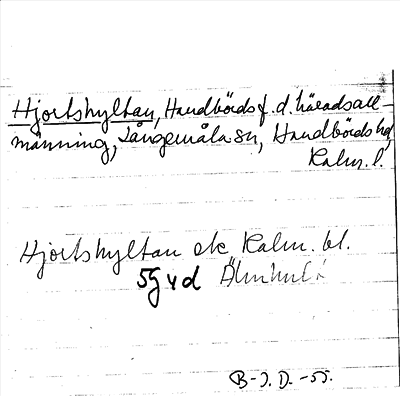 Hjortshyltan, Handbörds f.d. häradsall-
männing, Långemåla sn, Handbörds hd,
Kalm. l.
Hjortshyltan ek Kalm. bl.
5g v d
B-J. D. -55.